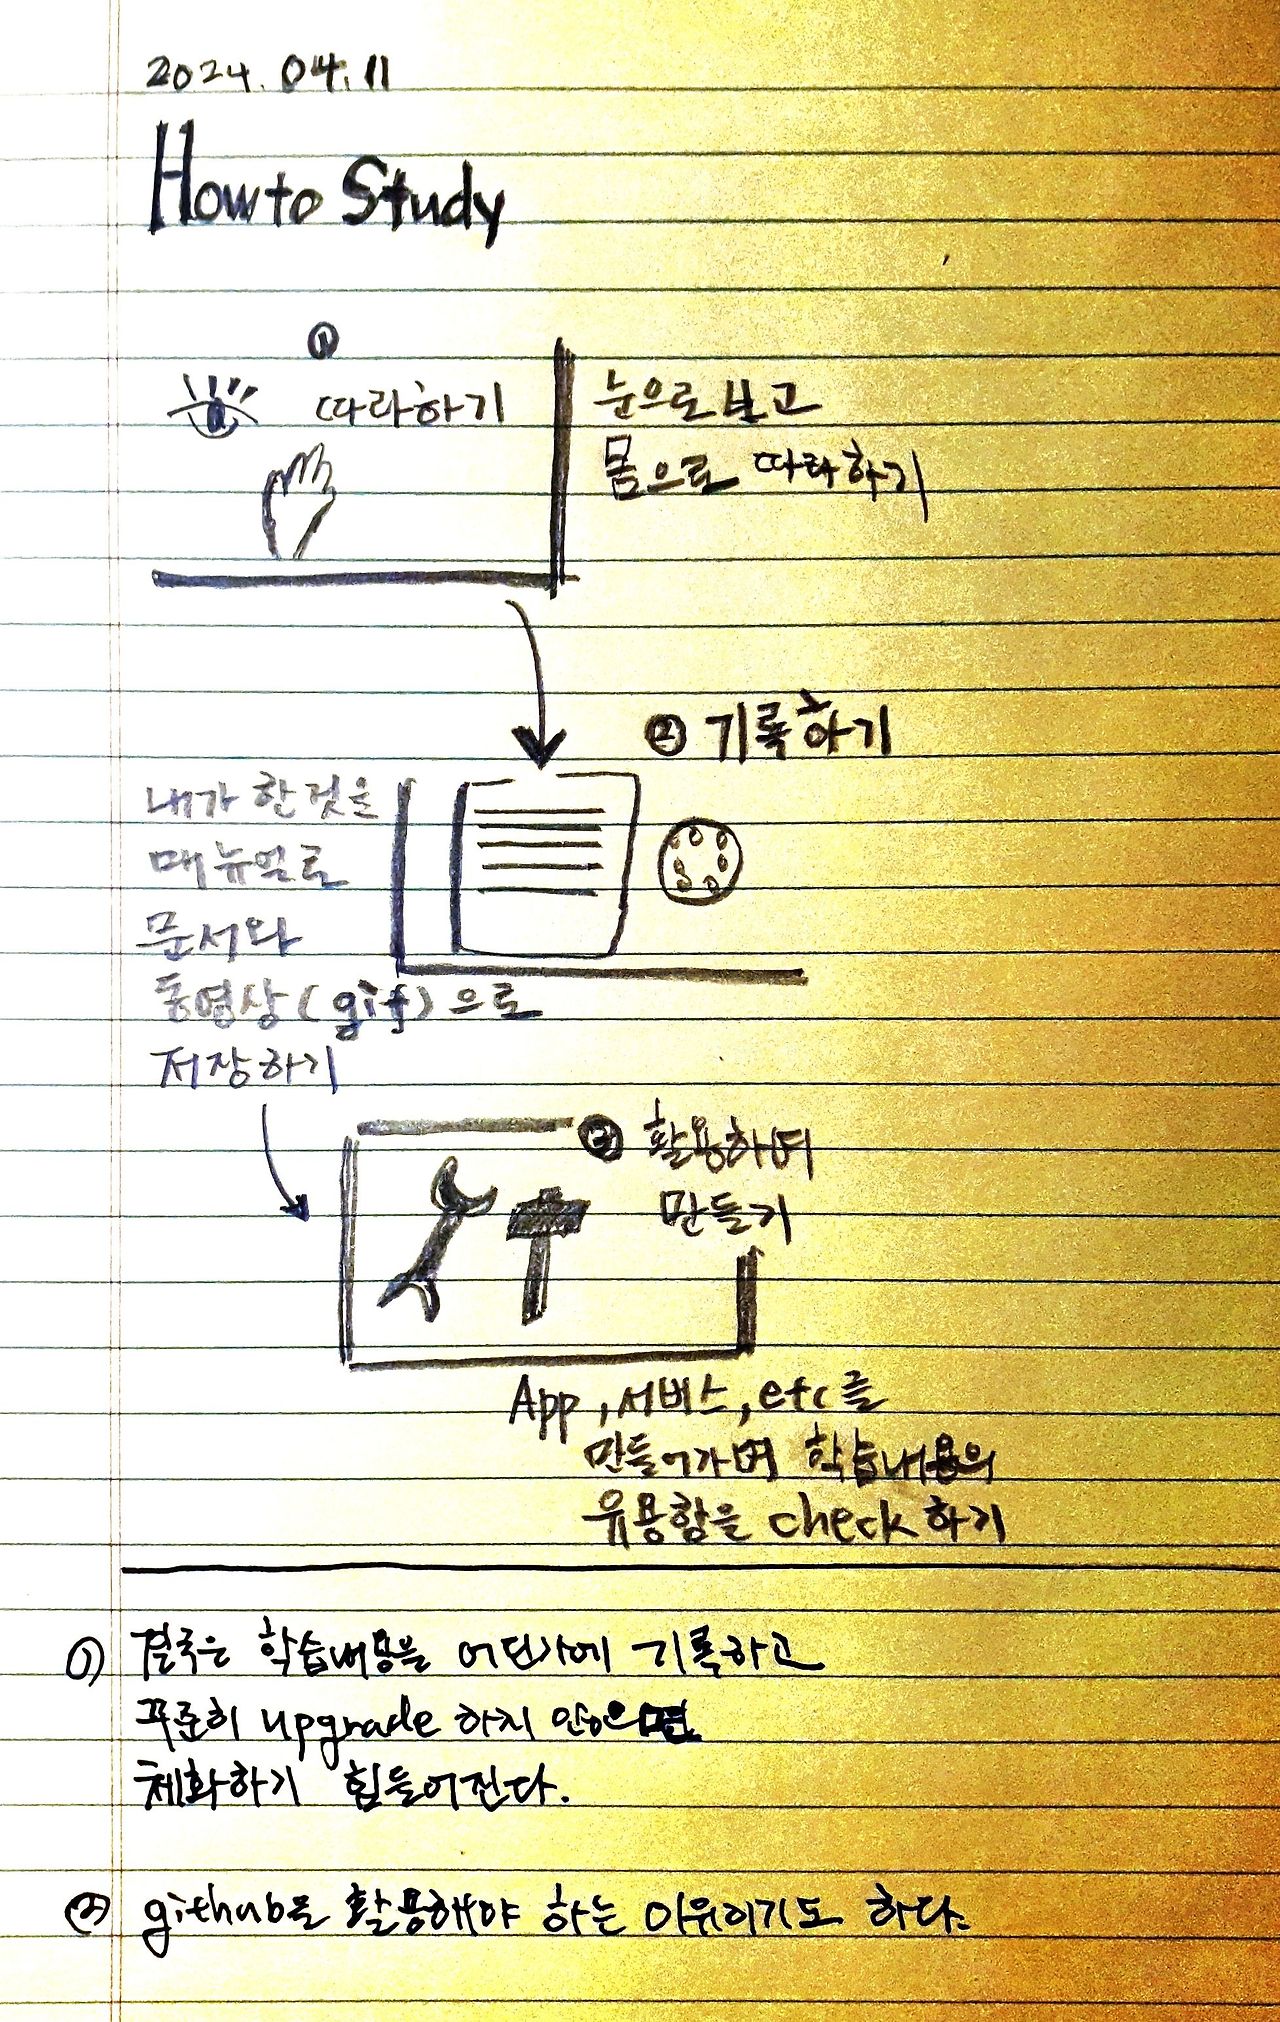 2024.04.11
How to Study
①
따라하기
눈으로 보고
몸으로 따라하기
② 기록하기
내가 한것을
매뉴얼로
문서와
동영상(gif)으로
저장하기
③ 활용하며
만들기
App, 서비스, etc를
만들어가며 학습내용의
유용함을 check 하기
① 결국은 학습내용을 어딘가에 기록하고
꾸준히 upgrade 하지 않으면
체화하기 힘들어진다.
② github을 활용해야 하는 이유이기도 하다.